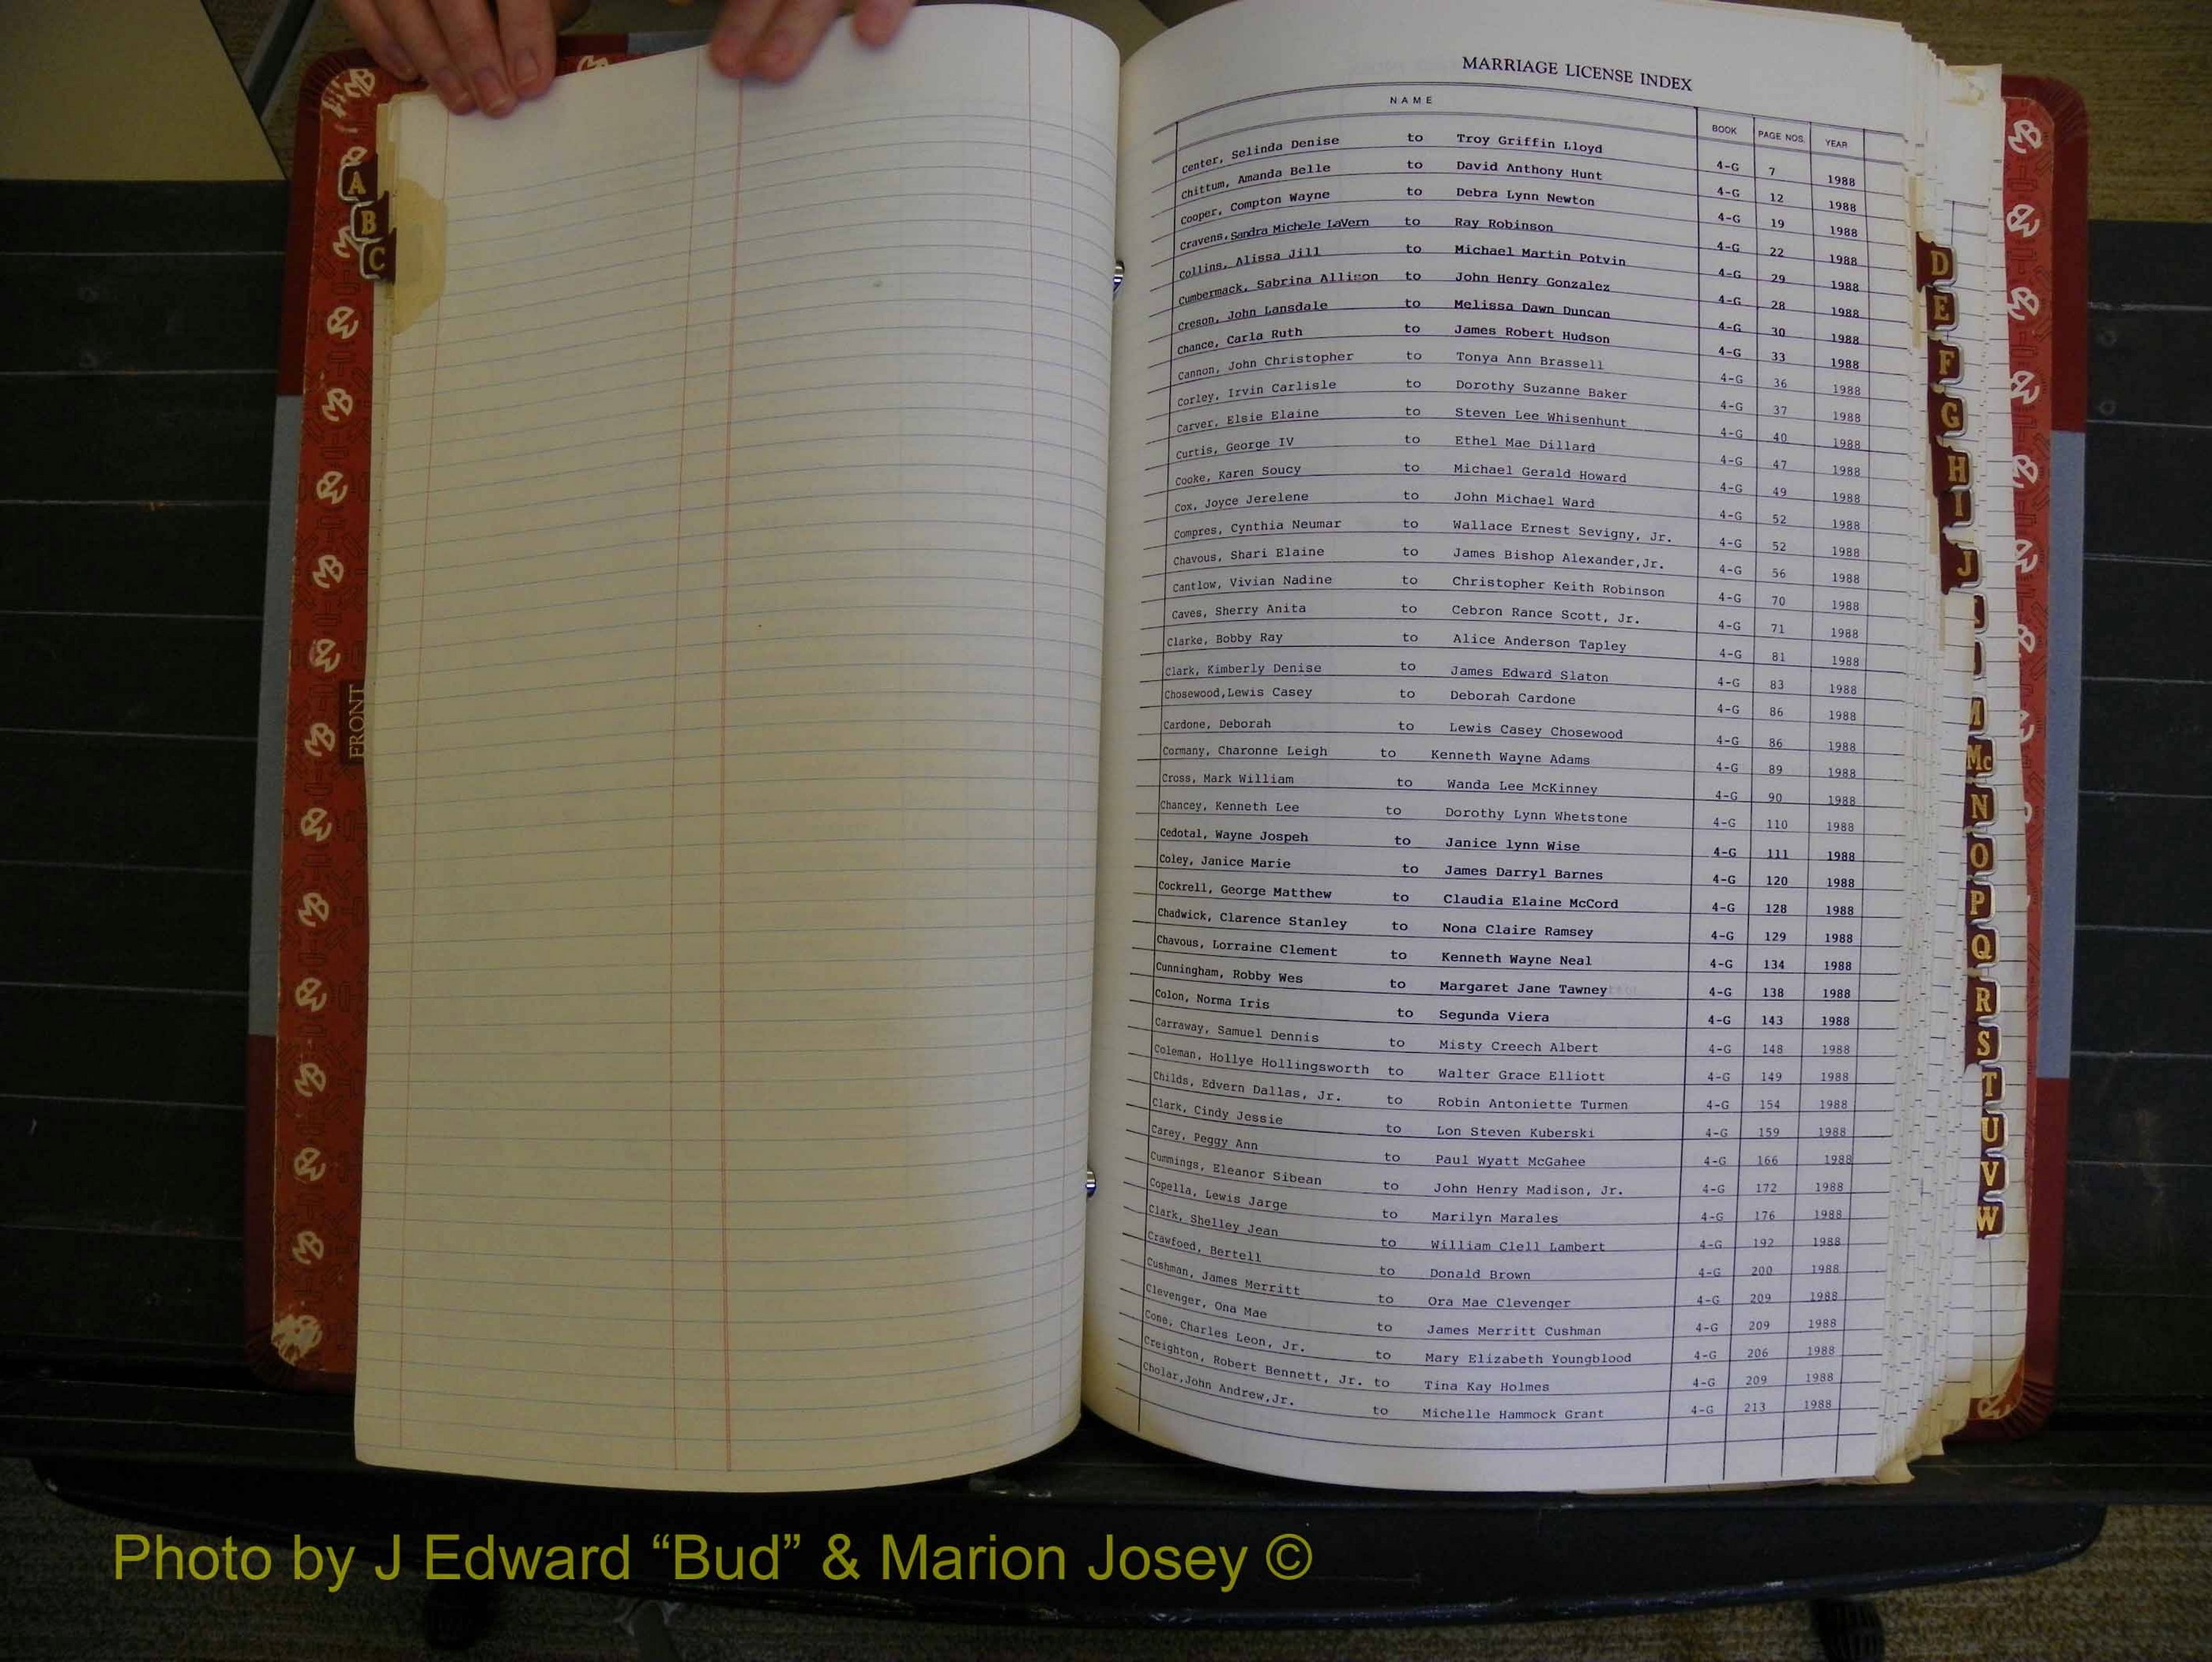 MARRIAGE LICENSE INDEX
NAME BOOK PAGE NOS. YEAR
Center, Selinda Denise to Troy Griffin Lloyd 4-G 7 1988
Chittum, Amanda Belle to David Anthony Hunt 4-G 12 1988
Cooper, Compton Wayne to Debra Lynn Newton 4-G 19 1988
Cravens, Sandra Michele LaVern to Ray Robinson 4-G 22 1988
Collins, Alissa Jill to Michael Martin Potvin 4-G 29 1988
Cumbermack, Sabrina Allison to John Henry Gonzalez 4-G 28 1988
Creson, John Lansdale to Melissa Dawn Duncan 4-G 30 1988
Chance, Carla Ruth to James Robert Hudson 4-G 33 1988
Cannon, John Christopher to Tonya Ann Brassell 4-G 36 1988
Corley, Irvin Carlisle to Dorothy Suzanne Baker 4-G 37 1988
Carver, Elsie Elaine to Steven Lee Whisenhunt 4-G 40 1988
Curtis, George IV to Ethel Mae Dillard 4-G 47 1988
Cooke, Karen Soucy to Michael Gerald Howard 4-G 49 1988
Cox, Joyce Jerelene to John Michael Ward 4-G 52 1988
Compres, Cynthia Neumar to Wallace Ernest Sevigny, Jr. 4-G 52 1988
Chavous, Shari Elaine to James Bishop Alexander,Jr. 4-G 56 1988
Cantlow, Vivian Nadine to Christopher Keith Robinson 4-G 70 1988
Caves, Sherry Anita to Cebron Rance Scott, Jr. 4-G 71 1988
Clarke, Bobby Ray to Alice Anderson Tapley 4-G 81 1988
Clark, Kimberly Denise to James Edward Slaton 4-G 83 1988
Chosewood,Lewis Casey to Deborah Cardone 4-G 86 1988
Cardone, Deborah to Lewis Casey Chosewood 4-G 86 1988
Cormany, Charonne Leigh to Kenneth Wayne Adams 4-G 89 1988
Cross, Mark William to Wanda Lee McKinney 4-G 90 1988
Chancey, Kenneth Lee to Dorothy Lynn Whetstone 4-G 110 1988
Cedotal, Wayne Jospeh to Janice lynn Wise 4-G 111 1988
Coley, Janice Marie to James Darryl Barnes 4-G 120 1988
Cockrell, George Matthew to Claudia Elaine McCord 4-G 128 1988
Chadwick, Clarence Stanley to Nona Claire Ramsey 4-G 129 1988
Chavous, Lorraine Clement to Kenneth Wayne Neal 4-G 134 1988
Cunningham, Robby Wes to Margaret Jane Tawney 4-G 138 1988
Colon, Norma Iris to Segunda Viera 4-G 143 1988
Carraway, Samuel Dennis to Misty Creech Albert 4-G 148 1988
Coleman, Hollye Hollingsworth to Walter Grace Elliott 4-G 149 1988
Childs, Edvern Dallas, Jr. to Robin Antoniette Turmen 4-G 154 1988
Clark, Cindy Jessie to Lon Steven Kuberski 4-G 159 1988
Carey, Peggy Ann to Paul Wyatt McGahee 4-G 166 1988
Cummings, Eleanor Sibean to John Henry Madison, Jr. 4-G 172 1988
Copella, Lewis Jarge to Marilyn Marales 4-G 176 1988
Clark, Shelley Jean to William Clell Lambert 4-G 192 1988
Crawfoed, Bertell to Donald Brown 4-G 200 1988
Cushman, James Merritt to Ora Mae Clevenger 4-G 209 1988
Clevenger, Ona Mae to James Merritt Cushman 4-G 209 1988
Cone, Charles Leon, Jr. to Mary Elizabeth Youngblood 4-G 206 1988
Creighton, Robert Bennett, Jr. to Tina Kay Holmes 4-G 209 1988
Cholar,John Andrew,Jr. to Michelle Hammock Grant 4-G 213 1988
A
B
C
FRONT
D
E
F
G
H
I
J
M
Mc
N
O
P
Q
R
S
T
U
V
W
Photo by J Edward “Bud” & Marion Josey ©